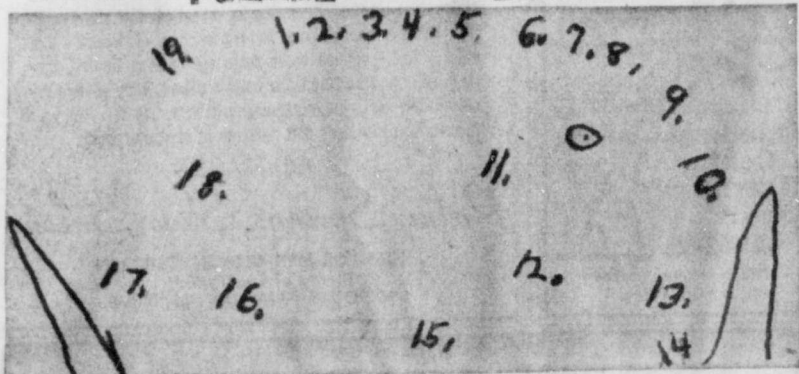 19. 1. 2. 3. 4. 5. 6. 7. 8.
9.
18. 11. 10.
17. 16. 12. 13.
15. 14